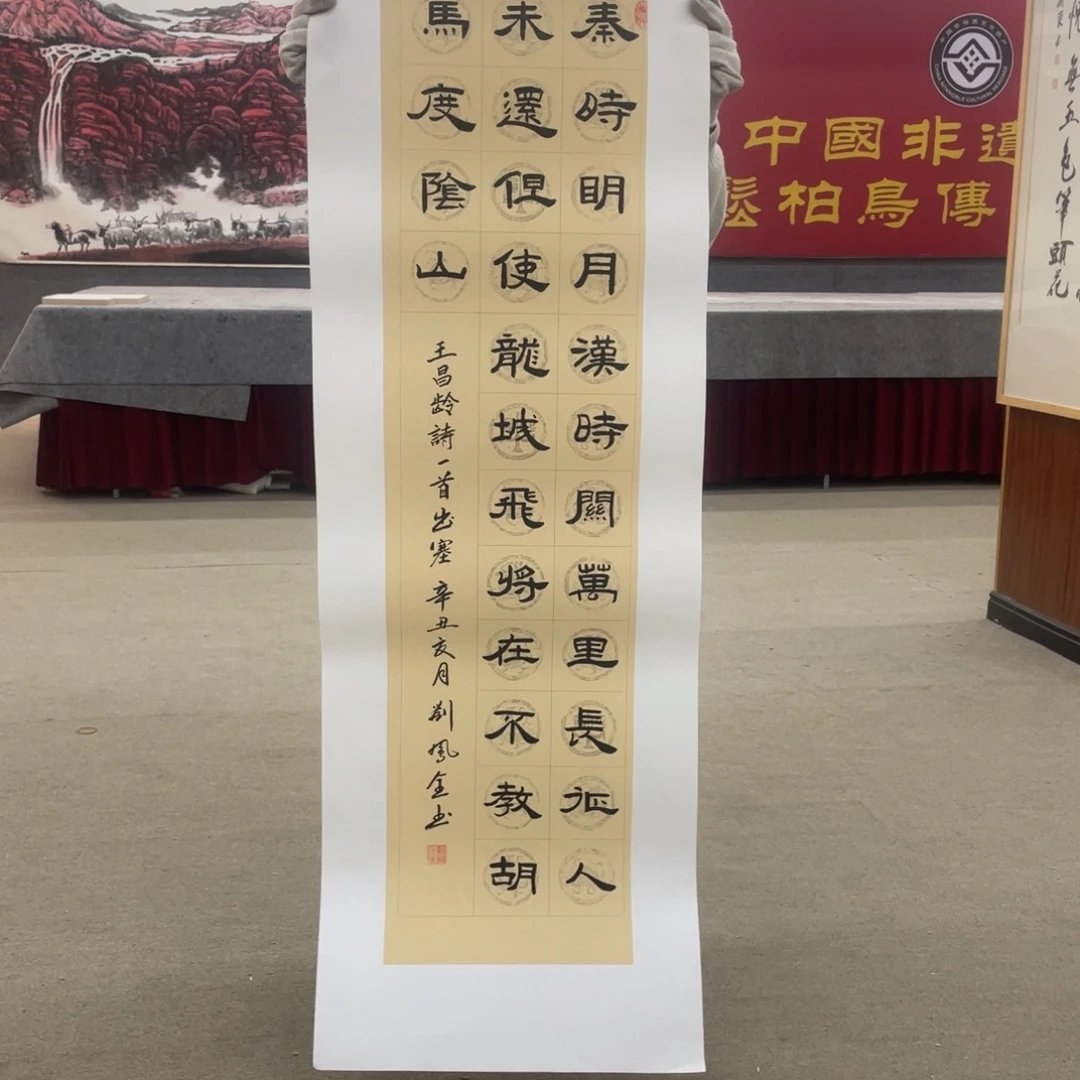 秦時明月漢時關萬里長征人
未還但使龍城飛將在不教胡
馬度陰山
王昌龄詩一首出塞 辛丑亥月 劉鳳金书
中國非遺
鬆柏鳥傳
五色筆頭花